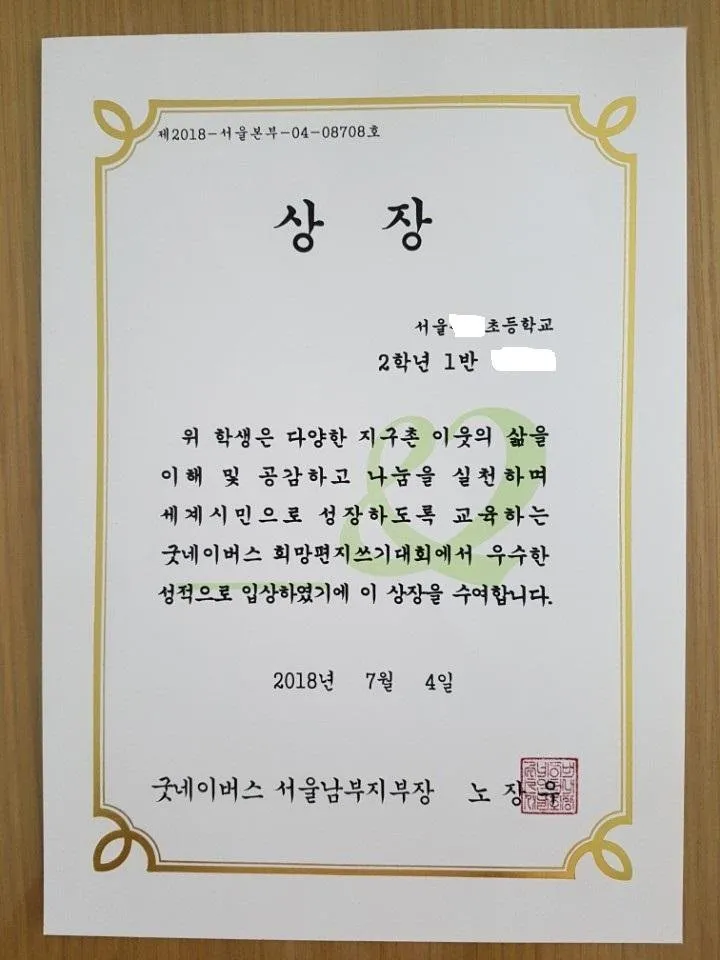 제2018-서울본부-04-08708호
상 장
서울 초등학교
2학년 1반
위 학생은 다양한 지구촌 이웃의 삶을
이해 및 공감하고 나눔을 실천하며
세계시민으로 성장하도록 교육하는
굿네이버스 희망편지쓰기대회에서 우수한
성적으로 입상하였기에 이 상장을 수여합니다.
2018년 7월 4일
굿네이버스 서울남부지부장 노 장 우